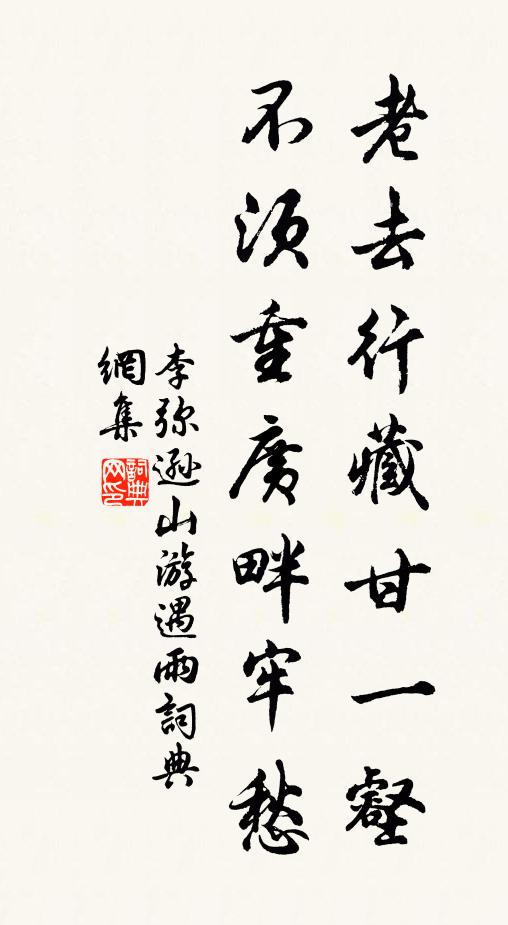 老去行藏甘一壑
不須重廣畔牢愁
李弥遜山游遇雨詞典
網集
詞典网印